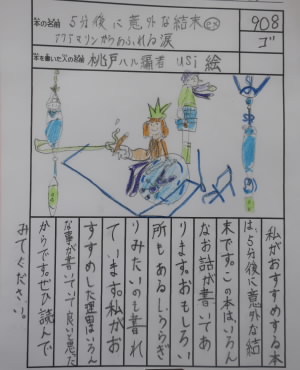 本の名前 5分後に意外な結末 ex
アクアマリンからあふれる涙
908
ゴ
本を書いた人の名前 桃戸ハル編著 usi 絵
私がおすすめする本
は、5分後に意外な結
末です。この本は、いろん
なお話が書いてあ
ります。おもしろい
所もあるしうらぎ
りみたいのも書れ
ています。私がお
すすめした理由はいろん
な事が書いていて良いと思った
からです。ぜひ読んで
みてください。